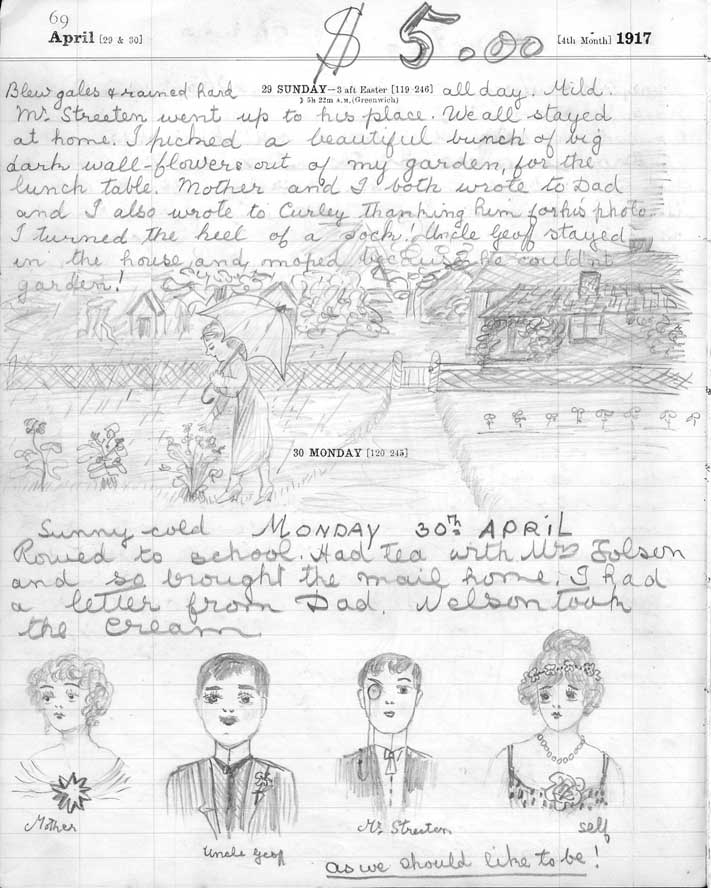 69
$ 5.00
April [29 & 30] [4th Month] 1917
Blew gales & rained hard 29 SUNDAY—3 aft Easter [119 246] all day. Mild.
5h 22m A.M. (Greenwich)
Mr Streeten went up to his place. We all stayed
at home. I picked a beautiful bunch of big
dark wall-flowers out of my garden, for the
lunch table. Mother and I both wrote to Dad
and I also wrote to Curley thanking him for his photo.
I turned the heel of a sock! Uncle Geoff stayed
in the house and moped because he couldn't
garden!
30 MONDAY [120 245]
Sunny cold MONDAY 30th APRIL
Rowed to school. Had tea with Mrs Folson
and so brought the mail home. I had
a letter from Dad. Nelson took
the cream
Mother
Uncle Geoff
Mr Streeten
self
as we should like to be!